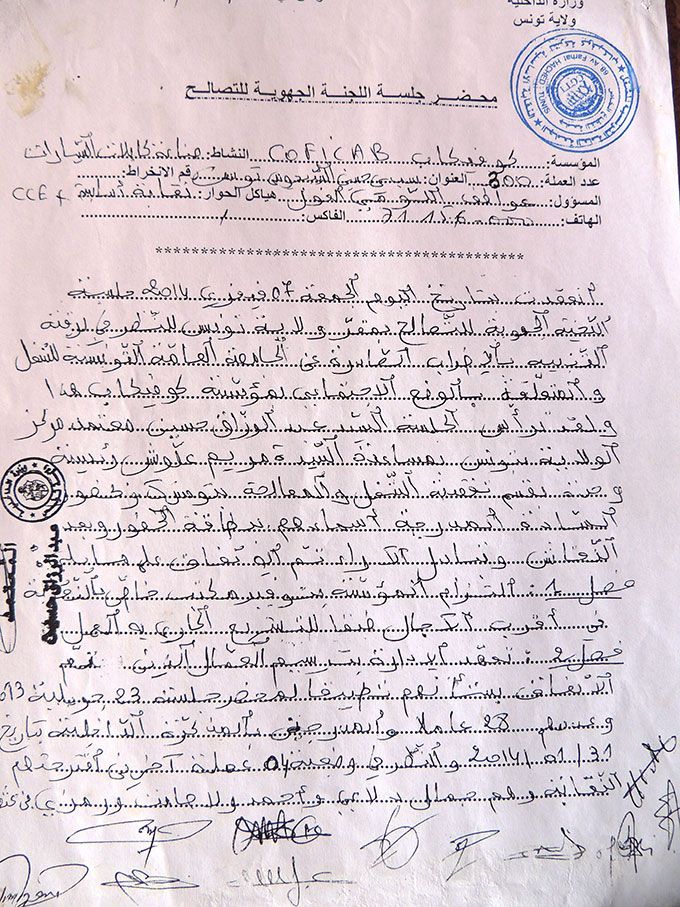 وزارة الداخلية
ولاية تونس
محضر جلسة اللجنة الجهوية للتصالح
المؤسسة: كوفيكاب COFICAB النشاط: صناعة كابلات السيارات
عدد العملة: 800 العنوان: سيدي حسين السيجومي تونس رقم الانخراط:
المسؤول: هياكل الحوار: نقابة أساسية + CCE
الهاتف: 71.116 الفاكس: /
انعقدت بتاريخ اليوم الجمعة 07 فيفري 2014 جلسة
اللجنة الجهوية للتصالح بمقر ولاية تونس للنظر في برقية
التنبيه بالإضراب الصادرة عن الجامعة العامة التونسية للشغل
والمتعلقة بالوضع الاجتماعي بمؤسسة كوفيكاب هذا
ولقد ترأس الجلسة السيد عبد الرزاق حسين معتمد مركز
الولاية بتونس بمساعدة السيدة مريم علوش رئيسة
وحدة بقسم تفقدية الشغل والمصالحة وحضور
السادة المدرجة أسماءهم ببطاقة الحضور وبعد
النقاش وتبادل الآراء تم الاتفاق على ما يلي
فصل 1: التزام المؤسسة بتوفير مكتب خاص بالنقابة
في أقرب الآجال طبقا للتشريع الجاري به العمل
فصل 2: تتعهد الإدارة بترسيم العمال الذين تم
الاتفاق بشأنهم تطبيقا لمحضر جلسة 23 جويلية 2013
وعددهم 28 عاملا والمدرجين بالمذكرة الداخلية بتاريخ
31/01/2014 والنظر في وضعية 04 عملة آخرين اقترحتهم
النقابة وهم جمال بلاعي وأحمد ورمزي
المعتمد
عبد الرزاق حسين
68 AV Farhat HACHED TUNIS
UGTT